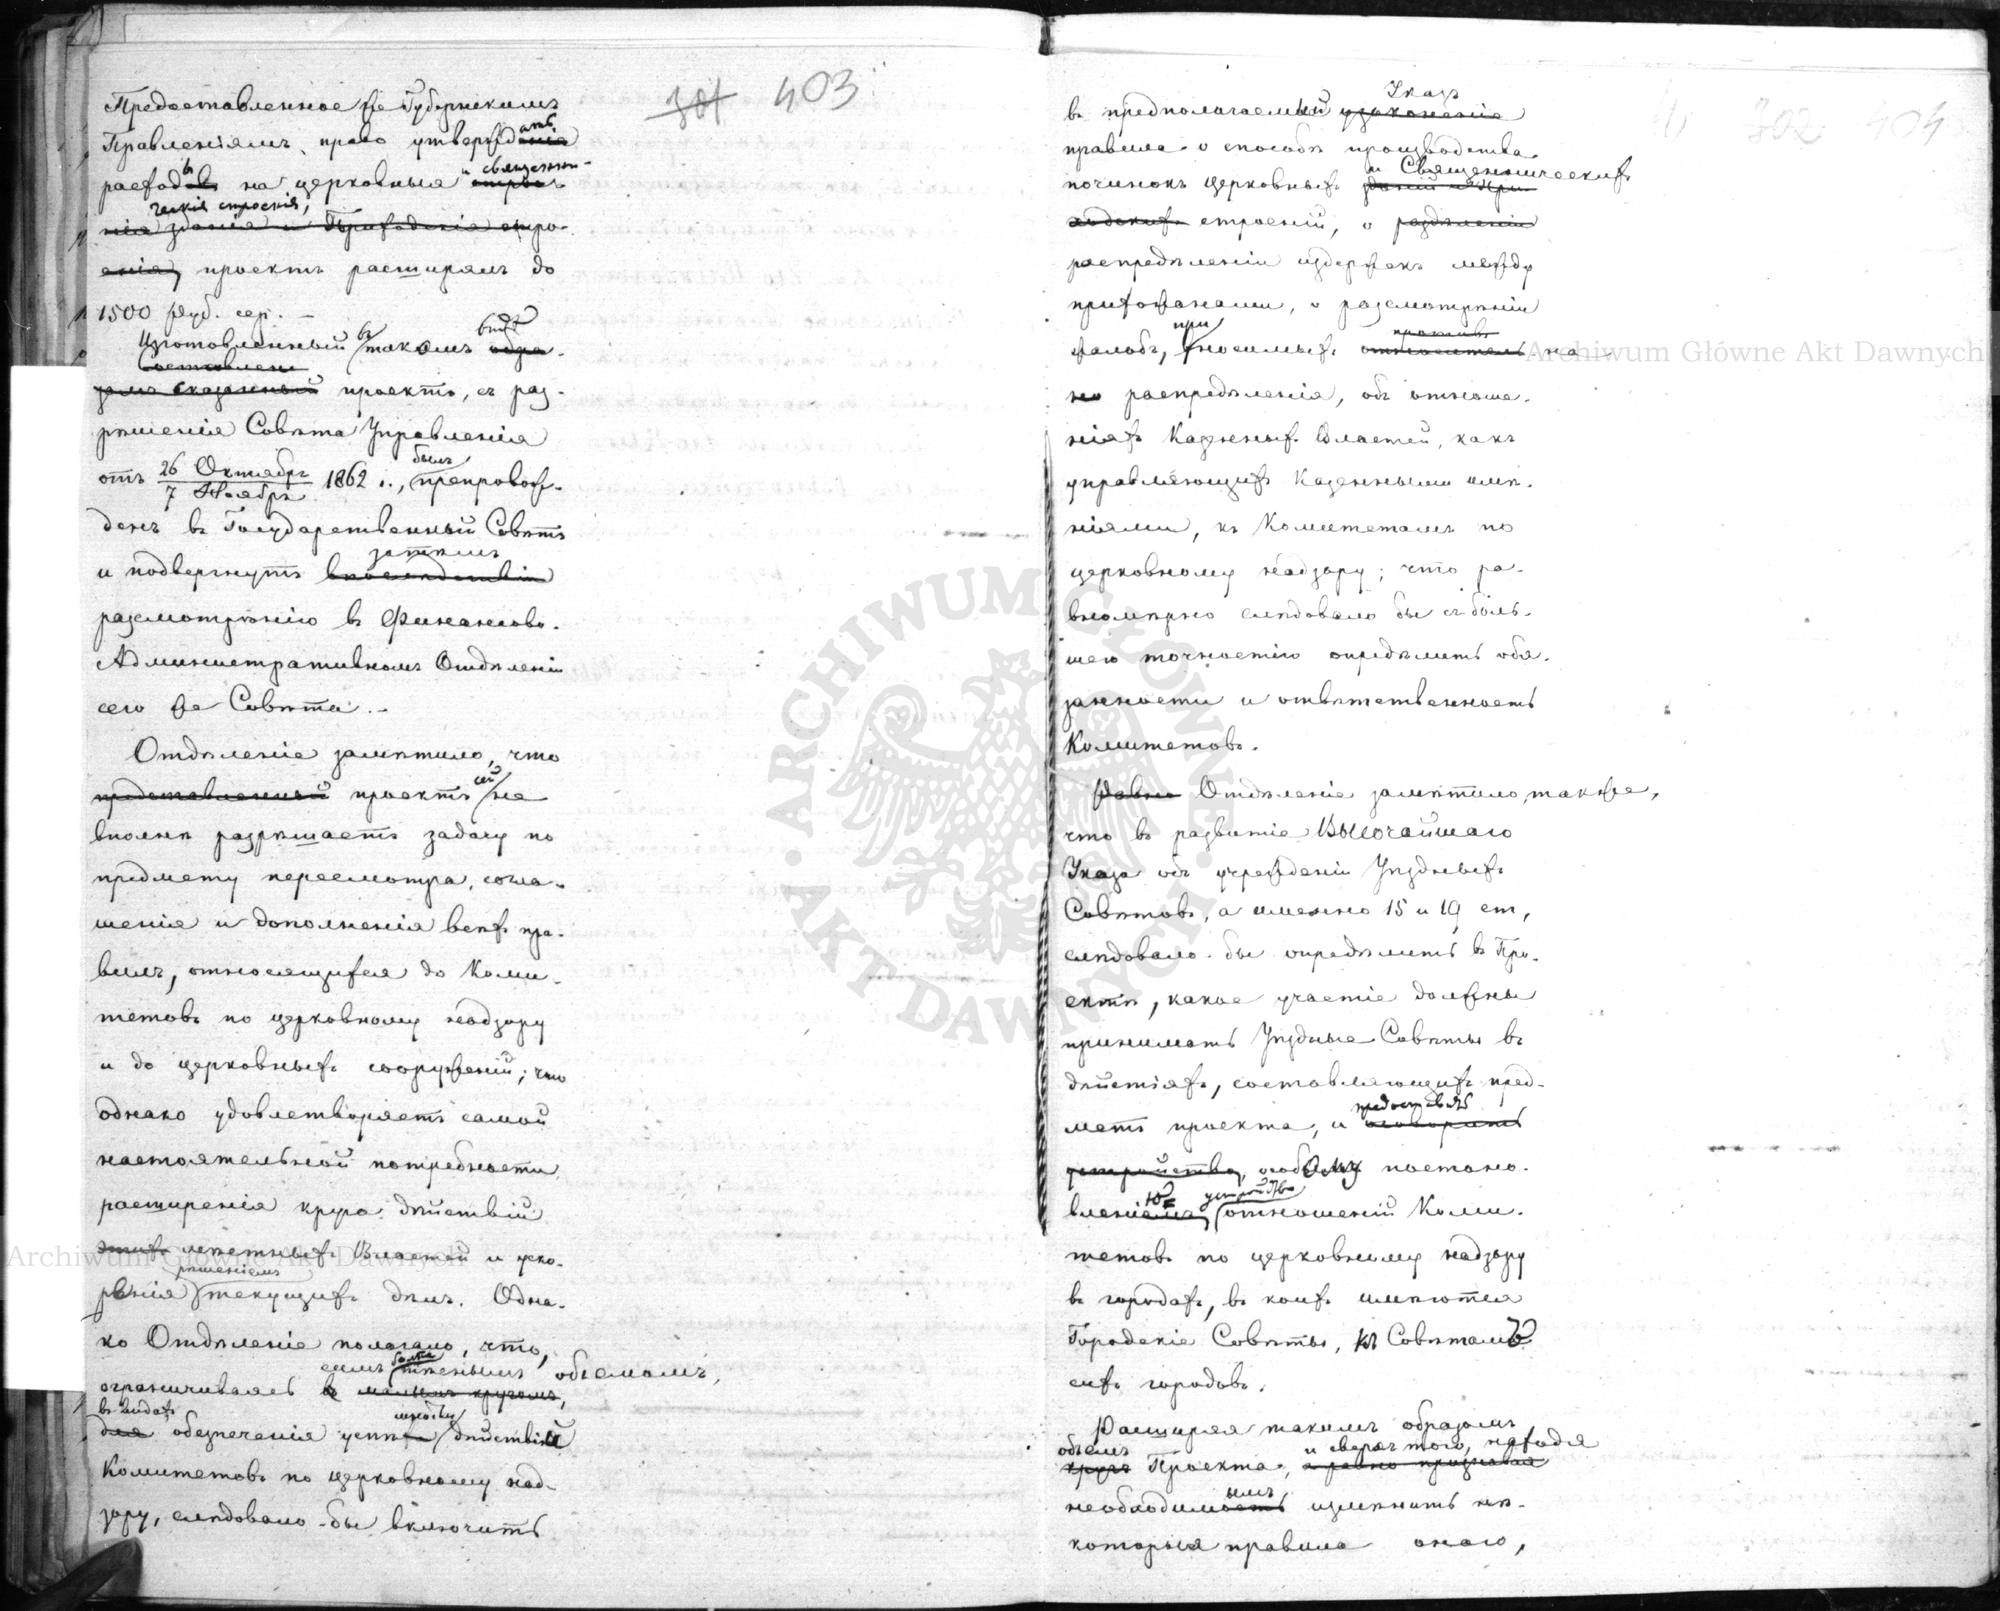 301 403
Предоставленное же Губернскимъ
Правленіямъ, право утверждать
утвержденія
расходъ на церковныя и священни-
ческія строенія,
нія зданія и Приходскія стро-
енія, проектъ расширялъ до
1500 руб. сер. —
Изготовленный въ такомъ видѣ
Составлен
зомъ сказанный проектъ, съ раз-
рѣшенія Совѣта Управленія
отъ 26 Октября / 7 Ноября 1862 г., былъ препровож-
денъ въ Государственный Совѣтъ
затѣмъ
и подвергнутъ впослѣдствіи
разсмотрѣнію въ Финансово-
Административномъ Отдѣленіи
сего же Совѣта. –
Отдѣленіе замѣтило, что
представленный проектъ сей не
вполнѣ разрѣшаетъ задачу по
предмету пересмотра, согла-
шенія и дополненія всѣхъ пра-
вилъ, относящихся до Коми-
тетовъ по церковному надзору
и до церковныхъ сооруженій; что
однако удовлетворяетъ самой
настоятельной потребности
расширенія круга дѣйствій
этихъ мѣстныхъ Властей и уско-
рѣшеніемъ
ренія текущихъ дѣлъ. Одна-
ко Отдѣленіе полагало, что,
симъ болѣе тѣснымъ объемомъ,
ограничиваясь малымъ кругомъ,
въ видахъ
для обезпеченія успѣшности дѣйствій
Комитетовъ по церковному над-
зору, слѣдовало-бы включить
302 404
Указъ
въ предполагаемый узаконенія
правила о способѣ производства
и Священническихъ
починокъ церковныхъ
строеній, о раздѣленіи
распредѣленіи издержекъ между
прихожанами, о разсмотрѣніи
противъ
жалобъ, приносимыхъ относительно на
но распредѣленія, объ отноше-
ніяхъ Казенныхъ Властей, какъ
управляющихъ Казенными имѣ-
ніями, къ Комитетамъ по
церковному надзору; что ра-
вномѣрно слѣдовало бы съ боль-
шею точностію опредѣлить обя-
занности и отвѣтственность
Комитетовъ.
Равно Отдѣленіе замѣтило также,
что въ развитіе Высочайшаго
Указа объ учрежденіи Уѣздныхъ
Совѣтовъ, а именно 15 и 19 ст,
слѣдовало-бы опредѣлить въ Про-
ектѣ, какое участіе должны
принимать Уѣздные Совѣты въ
дѣйствіяхъ, составляющихъ пред-
предоставить
метъ проекта, и оговорить
устройство, особому постано-
вленію устройство отношеній Коми-
тетовъ по церковному надзору
въ городахъ, въ коихъ имѣются
Городскіе Совѣты, къ Совѣтамъ
сихъ городовъ.
Расширяя такимъ образомъ
объемъ и сверхъ того, находя
кругъ Проекта, а равно признавая
необходимымъ измѣнить нѣ-
которыя правила онаго,
Archiwum Główne Akt Dawnych
Archiwum Główne Akt Dawnych
ARCHIWUM GŁÓWNE · AKT DAWNYCH ·